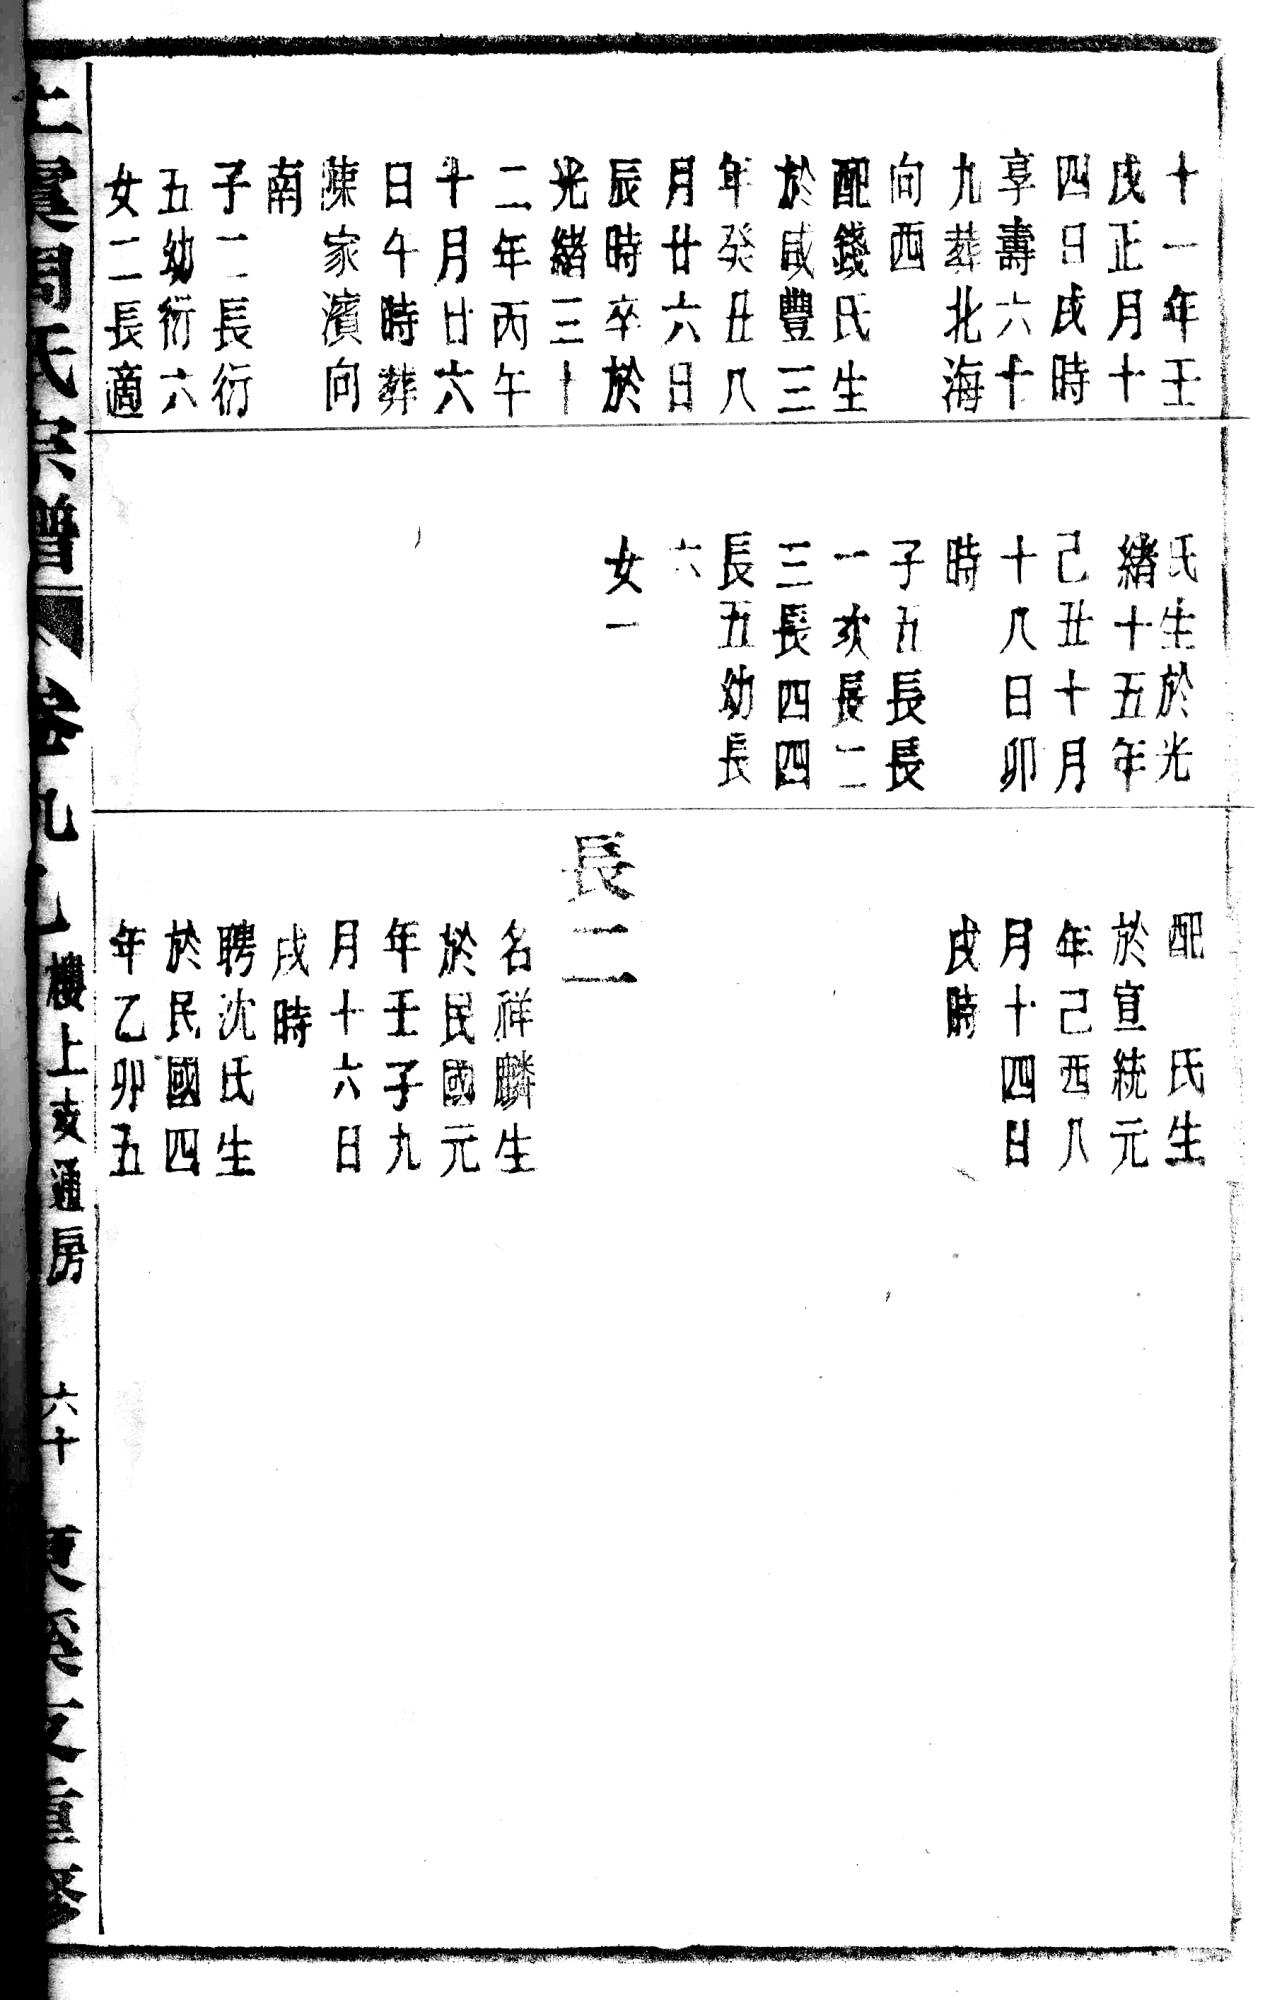 十一年壬
戌正月十
四日戌時
享壽六十
九葬北海
向西
配錢氏生
於咸豐三
年癸丑八
月廿六日
辰時卒於
光緒三十
二年丙午
十月廿六
日午時葬
陳家濱向
南
子二長衍
五幼衍六
女二長適
氏生於光
緒十五年
己丑十月
十八日卯
時
子五長長
一次長二
三長四四
長五幼長
六
女一
配　氏生
於宣統元
年己酉八
月十四日
戌時
長二
名祥麟生
於民國元
年壬子九
月十六日
戌時
聘沈氏生
於民國四
年乙卯五
上虞周氏宗譜
卷九乙
樓上支通房
六十
重修